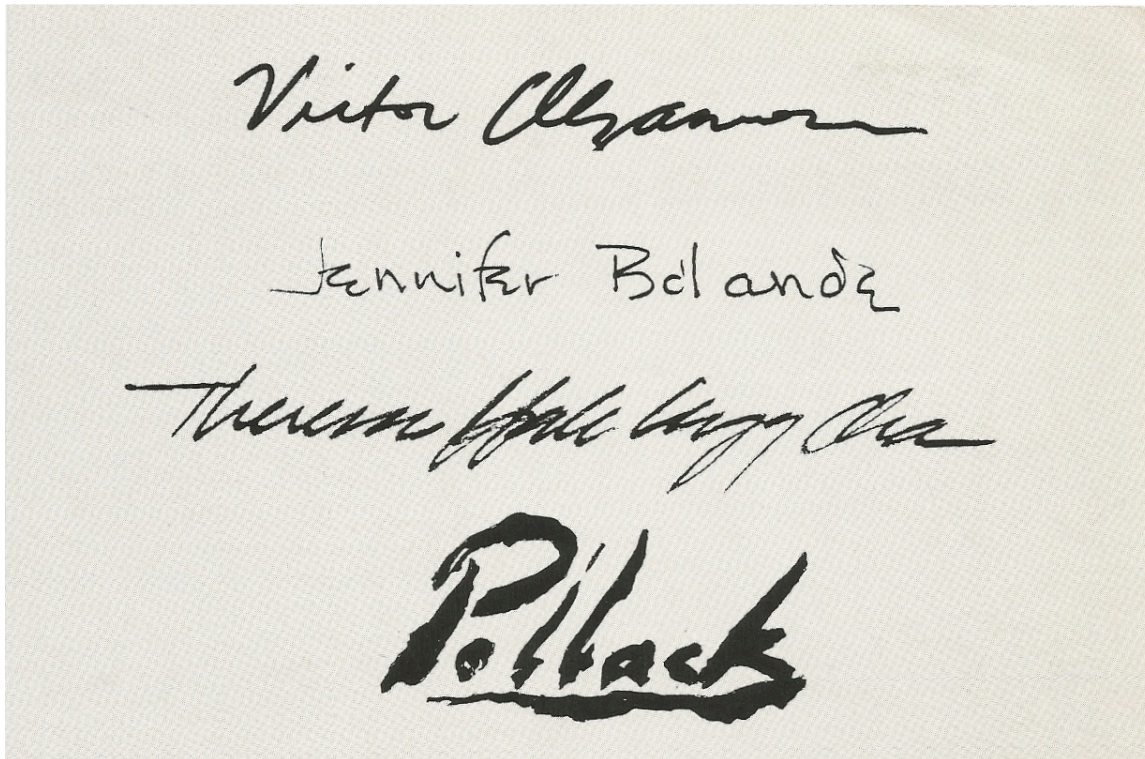 Victor Alzamora
Jennifer Bolande
Theresa Hak Kyung Cha
Pollack